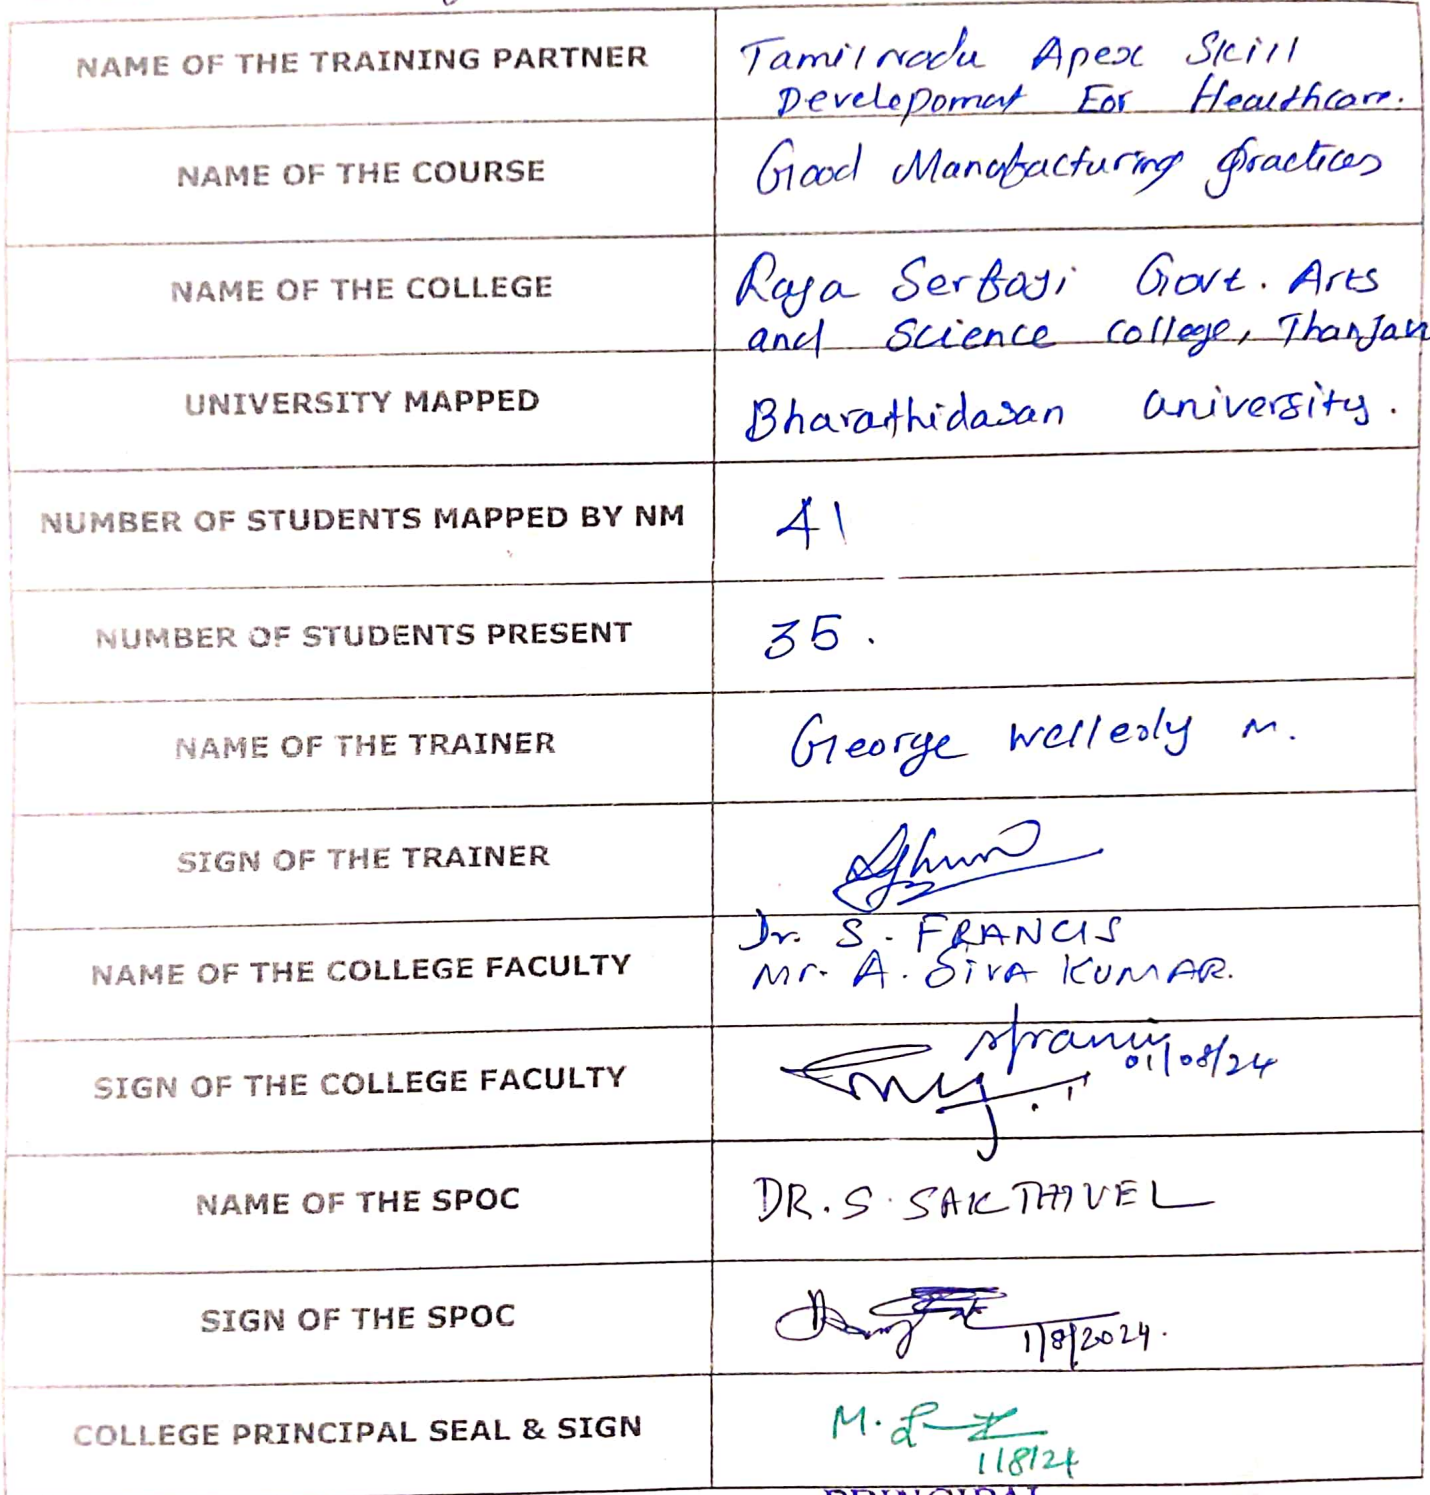 NAME OF THE TRAINING PARTNER
Tamilnadu Apex Skill
Developomat For Healthcare.
NAME OF THE COURSE
Good Manufacturing practices
NAME OF THE COLLEGE
Raja Serfoji Govt. Arts
and Science college, Thanjav
UNIVERSITY MAPPED
Bharathidasan university.
NUMBER OF STUDENTS MAPPED BY NM
41
NUMBER OF STUDENTS PRESENT
35.
NAME OF THE TRAINER
George wellesly M.
SIGN OF THE TRAINER
NAME OF THE COLLEGE FACULTY
Dr. S. FRANCIS
Mr. A. SIVA KUMAR.
SIGN OF THE COLLEGE FACULTY
01/08/24
NAME OF THE SPOC
DR. S. SAKTHIVEL
SIGN OF THE SPOC
1/8/2024.
COLLEGE PRINCIPAL SEAL & SIGN
M.
1/8/24
PRINCIPAL